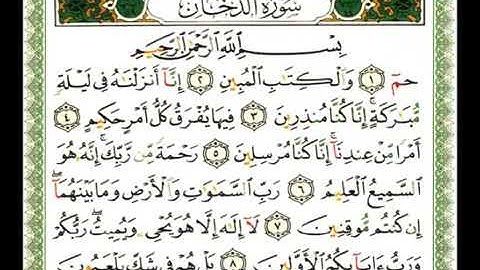 سُورَةُ الدُّخَانِ
بِسْمِ ٱللَّهِ ٱلرَّحْمَٰنِ ٱلرَّحِيمِ
حمٓ ١ وَٱلْكِتَٰبِ ٱلْمُبِينِ ٢ إِنَّآ أَنزَلْنَٰهُ فِى لَيْلَةٍ
مُّبَٰرَكَةٍ ۚ إِنَّا كُنَّا مُنذِرِينَ ٣ فِيهَا يُفْرَقُ كُلُّ أَمْرٍ حَكِيمٍ ٤
أَمْرًا مِّنْ عِندِنَآ ۚ إِنَّا كُنَّا مُرْسِلِينَ ٥ رَحْمَةً مِّن رَّبِّكَ ۚ إِنَّهُۥ هُوَ
ٱلسَّمِيعُ ٱلْعَلِيمُ ٦ رَبِّ ٱلسَّمَٰوَٰتِ وَٱلْأَرْضِ وَمَا بَيْنَهُمَآ ۖ
إِن كُنتُم مُّوقِنِينَ ٧ لَآ إِلَٰهَ إِلَّا هُوَ يُحْىِۦ وَيُمِيتُ ۖ رَبُّكُمْ
وَرَبُّ ءَابَآئِكُمُ ٱلْأَوَّلِينَ ٨ بَلْ هُمْ فِى شَكٍّ يَلْعَبُونَ